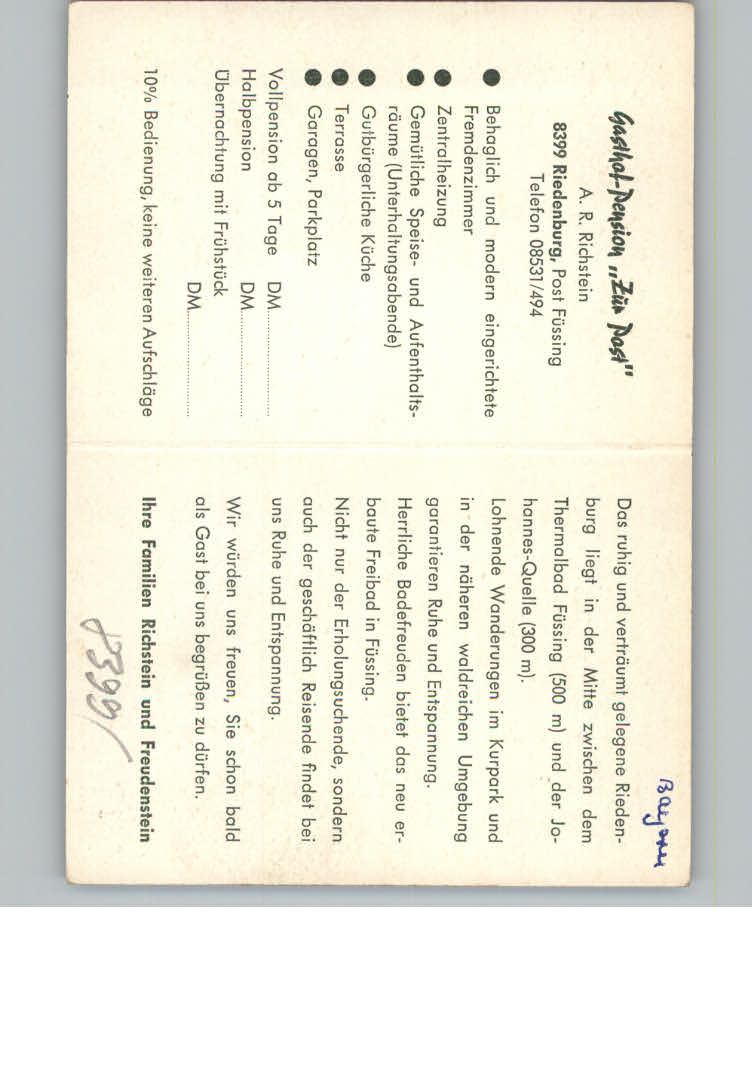 Gasthof-Pension „Zur Post"
A. R. Richstein
8399 Riedenburg, Post Füssing
Telefon 08531/494
● Behaglich und modern eingerichtete
Fremdenzimmer
● Zentralheizung
● Gemütliche Speise- und Aufenthalts-
räume (Unterhaltungsabende)
● Gutbürgerliche Küche
● Terrasse
● Garagen, Parkplatz
Vollpension ab 5 Tage DM....................
Halbpension DM....................
Übernachtung mit Frühstück
DM....................
10% Bedienung, keine weiteren Aufschläge
Bayern
Das ruhig und verträumt gelegene Rieden-
burg liegt in der Mitte zwischen dem
Thermalbad Füssing (500 m) und der Jo-
hannes-Quelle (300 m).
Lohnende Wanderungen im Kurpark und
in der näheren waldreichen Umgebung
garantieren Ruhe und Entspannung.
Herrliche Badefreuden bietet das neu er-
baute Freibad in Füssing.
Nicht nur der Erholungsuchende, sondern
auch der geschäftlich Reisende findet bei
uns Ruhe und Entspannung.
Wir würden uns freuen, Sie schon bald
als Gast bei uns begrüßen zu dürfen.
Ihre Familien Richstein und Freudenstein
8399/